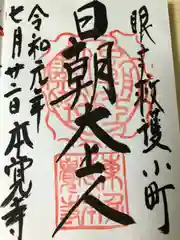 眼を救護小町
日朝大上人
令和元年
七月廿二日本覚寺